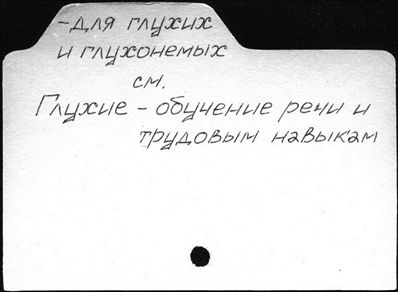 -для глухих
и глухонемых
см.
Глухие - обучение речи и
трудовым навыкам